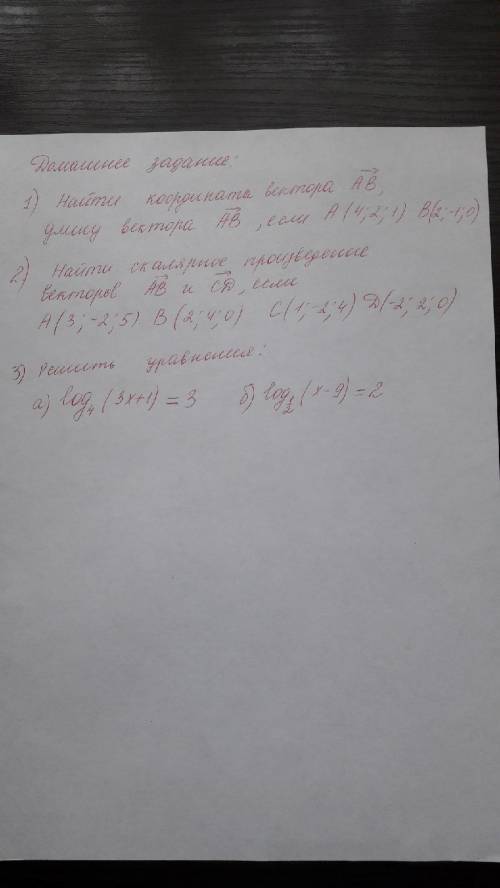 Домашнее задание:
1) Найти координаты вектора AB,
длину вектора AB, если A(4;2;1) B(2;-1;0)
2) Найти скалярное произведение
векторов AB и CD, если
A(3;-2;5) B(2;4;0) C(1;-2;4) D(-2;2;0)
3) Решить уравнения:
а) log₄(3x+1)=3 б) log½(x-9)=2